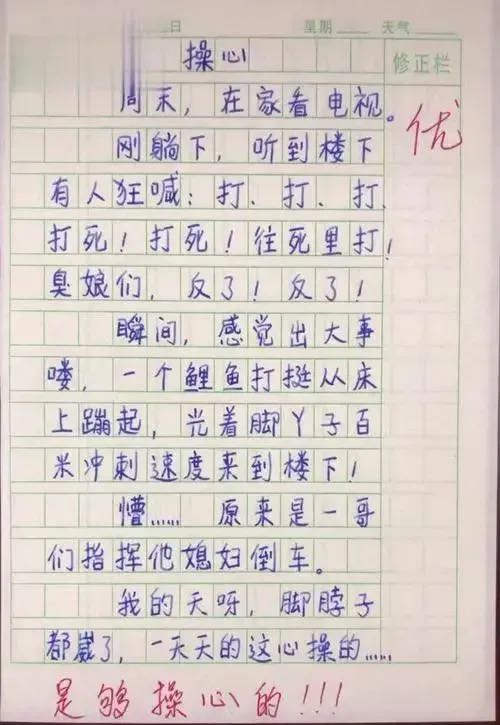 日 星期 天气
操心
修正栏
周末，在家看电视。
优
刚躺下，听到楼下
有人狂喊：打、打、打、
打死！打死！往死里打！
臭娘们，反了！反了！
瞬间，感觉出大事
喽，一个鲤鱼打挺从床
上蹦起，光着脚丫子百
米冲刺速度来到楼下！
懵…… 原来是一哥
们指挥他媳妇倒车。
我的天呀，脚脖子
都崴了，一天天的这心操的……
是够操心的！！！